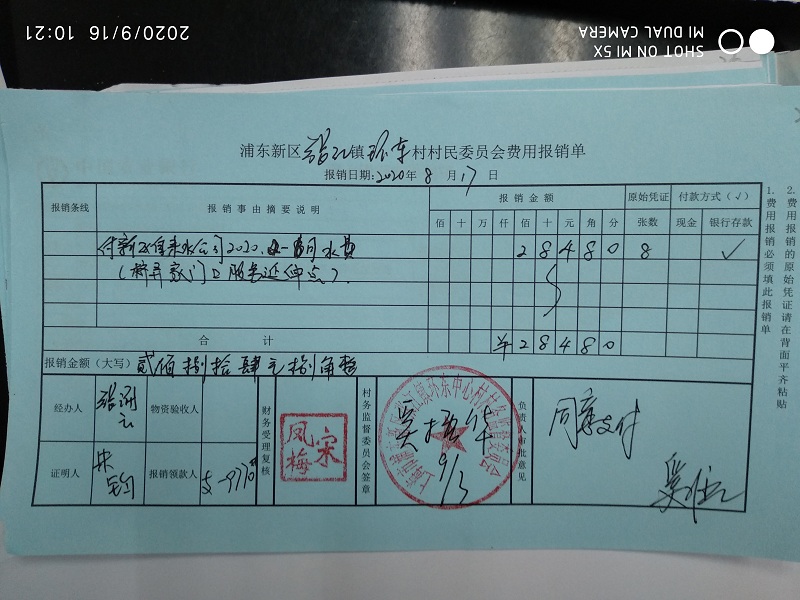 2020/9/16 10:21
SHOT ON MI 5X
MI DUAL CAMERA
浦东新区张江镇环东村村民委员会费用报销单
报销日期:2020年8月17日
报销条线 报销事由摘要说明 报销金额 原始凭证 付款方式(√)
佰 十 万 仟 佰 十 元 角 分 张数 现金 银行存款
自来水公司2020. 水费 2 8 4 8 0 8 √
服务延伸点)
合计 ¥ 2 8 4 8 0
报销金额(大写) 贰佰捌拾肆元捌角整
经办人 物资验收人 财务受理复核 宋凤梅 村务监督委员会签章 9/3 负责人审批意见 同意支付
证明人 报销领款人
1.费用报销必须填此报销单
2.费用报销的原始凭证请在背面平齐粘贴